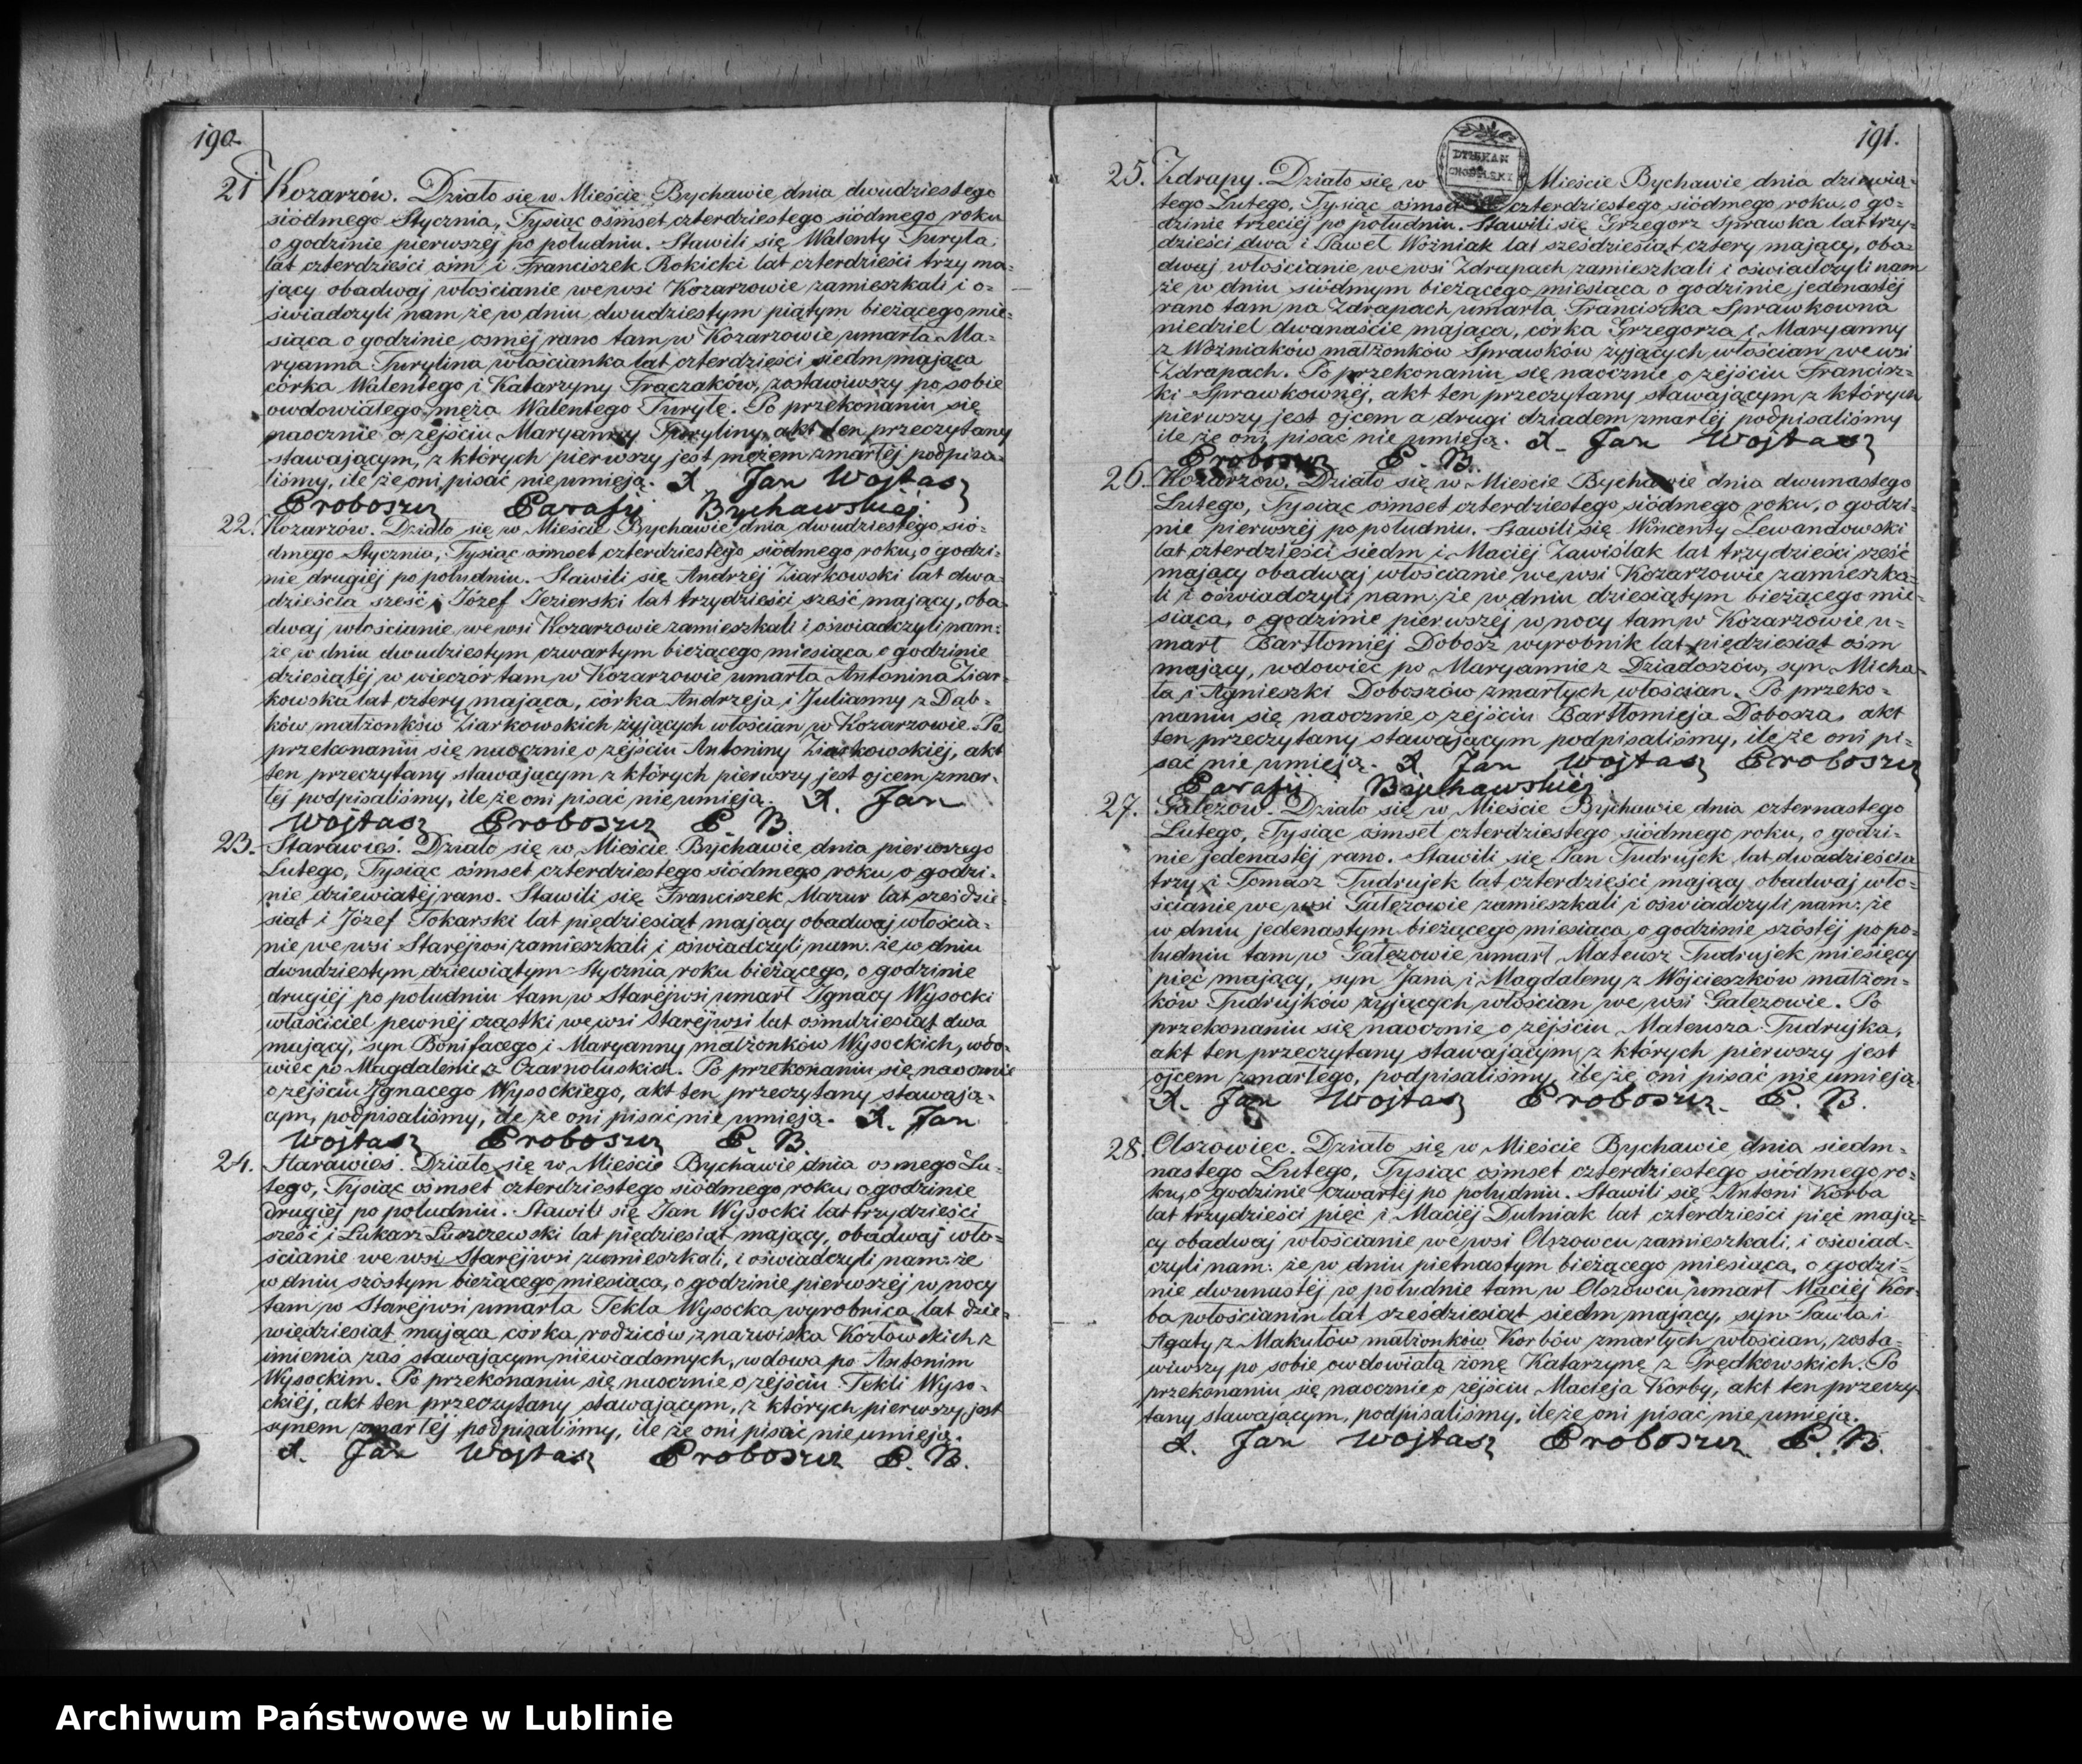 190.
21 Kozarzów. Działo się w Mieście Bychawie dnia dwudziestego
siódmego Stycznia, Tysiąc ośmset czterdziestego siódmego roku
o godzinie pierwszej po południu. Stawili się Walenty Turyła
lat czterdzieści ośm i Franciszek Rokicki lat czterdzieści trzy ma-
jący obadwaj włościanie we wsi Kozarzowie zamieszkali i o-
świadczyli nam że w dniu dwudziestym piątym bieżącego mie-
siąca o godzinie osméj rano tam w Kozarzowie umarła Ma-
ryanna Turylina włościanka lat czterdzieści siedm mająca
córka Walentego i Katarzyny Frączaków, zostawiwszy po sobie
owdowiałego męża Walentego Turyłę. Po przekonaniu się
naocznie o zejściu Maryanny Turyliny, akt ten przeczytany
stawającym, z których pierwszy jest mężem zmarłéj podpisa-
liśmy, ile że oni pisać nie umieją. X Jan Wojtasz
Proboszcz Parafij Bychawskiéj.
22. Kozarzów. Działo się w Mieście Bychawie dnia dwudziestego sió-
dmego Stycznia, Tysiąc ośmset czterdziestego siódmego roku, o godzi-
nie drugiéj po południu. Stawili się Andrzéj Ziarkowski lat dwa-
dzieścia sześć i Józef Jezierski lat trzydzieści sześć mający, oba-
dwaj włościanie we wsi Kozarzowie zamieszkali i oświadczyli nam:
że w dniu dwudziestym czwartym bieżącego miesiąca o godzinie
dziesiątéj w wieczór tam w Kozarzowie umarła Antonina Ziar-
kowska lat cztery mająca, córka Andrzeja i Julianny z Dąb-
ków małżonków Ziarkowskich żyjących włościan w Kozarzowie. Po
przekonaniu się naocznie o zejściu Antoniny Ziarkowskiéj, akt
ten przeczytany stawającym z których pierwszy jest ojcem zmar-
łéj podpisaliśmy, ile że oni pisać nie umieją. X. Jan
Wojtasz Proboszcz P. B.
23. Starawieś. Działo się w Mieście Bychawie dnia pierwszego
Lutego, Tysiąc ośmset czterdziestego siódmego roku o godzi-
nie dziewiątéj rano. Stawili się Franciszek Mazur lat sześdzie-
siąt i Józef Tokarski lat pięćdziesiąt mający obadwaj włościa-
nie we wsi Staréjwsi zamieszkali i oświadczyli nam: że w dniu
dwudziestym dziewiątym Stycznia roku bieżącego, o godzinie
drugiéj po południu tam w Staréjwsi umarł Ignacy Wysocki
właściciel pewnéj cząstki we wsi Staréjwsi lat ośmdziesiąt dwa
mający, syn Bonifacego i Maryanny małżonków Wysockich, wdo-
wiec po Magdalenie z Czarnołuskich. Po przekonaniu się naocznie
o zejściu Ignacego Wysockiego, akt ten przeczytany stawają-
cym, podpisaliśmy, ile że oni pisać nie umieją. X. Jan
Wojtasz Proboszcz P. B.
24. Starawieś. Działo się w Mieście Bychawie dnia osmego Lu-
tego, Tysiąc ośmset czterdziestego siódmego roku, o godzinie
drugiéj po południu. Stawili się Jan Wysocki lat trzydzieści
sześć i Łukasz Luszczewski lat pięćdziesiąt mający, obadwaj wło-
ścianie we wsi Staréjwsi zamieszkali, i oświadczyli nam: że
w dniu szóstym bieżącego miesiąca, o godzinie pierwszéj w nocy
tam w Staréjwsi umarła Tekla Wysocka wyrobnica lat dzie-
więdziesiąt mająca córka rodziców z nazwiska Kozłowskich z
imienia zaś stawającym niewiadomych, wdowa po Antonim
Wysockim. Po przekonaniu się naocznie o zejściu Tekli Wyso-
ckiéj, akt ten przeczytany stawającym, z których pierwszy jest
synem zmarłéj podpisaliśmy, ile że oni pisać nie umieją.
X. Jan Wojtasz Proboszcz P. B.
191.
DZIEKAN
CHODELSKI
25. Zdrapy. Działo się w Mieście Bychawie dnia dziewią-
tego Lutego, Tysiąc ośmset czterdziestego siódmego roku, o go-
dzinie trzeciéj po południu. Stawili się Grzegorz Sprawka lat trzy-
dzieści dwa i Paweł Woźniak lat sześdziesiąt cztery mający, oba-
dwaj włościanie we wsi Zdrapach zamieszkali i oświadczyli nam
że w dniu siódmym bieżącego miesiąca o godzinie jedenastéj
rano tam na Zdrapach umarła Franciszka Sprawkowna
niedziel dwanaście mająca, córka Grzegorza i Maryanny
z Woźniaków małżonków Sprawków żyjących włościan we wsi
Zdrapach. Po przekonaniu się naocznie o zejściu Francisz-
ki Sprawkownéj, akt ten przeczytany stawającym z których
pierwszy jest ojcem a drugi dziadem zmarłéj podpisaliśmy
ile że oni pisać nie umieją. X. Jan Wojtasz
Proboszcz P. B.
26. Kozarzów. Działo się w Mieście Bychawie dnia dwunastego
Lutego, Tysiąc ośmset czterdziestego siódmego roku, o godzi-
nie pierwszéj po południu. Stawili się Wincenty Lewandowski
lat czterdzieści siedm i Maciéj Zawiślak lat trzydzieści sześć
mający obadwaj włościanie we wsi Kozarzowie zamieszka-
li i oświadczyli nam: że w dniu dziesiątym bieżącego mie-
siąca, o godzinie pierwszéj w nocy tam w Kozarzowie u-
marł Bartłomiéj Dobosz wyrobnik lat pięćdziesiąt ośm
mający, wdowiec po Maryannie z Dziadoszów, syn Micha-
ła i Agnieszki Doboszów zmarłych włościan. Po przeko-
naniu się naocznie o zejściu Bartłomieja Dobosza, akt
ten przeczytany stawającym podpisaliśmy, ile że oni pi-
sać nie umieją. X Jan Wojtasz Proboszcz
Parafij Bychawskiéj
27. Gałęzów. Działo się w Mieście Bychawie dnia czternastego
Lutego, Tysiąc ośmset czterdziestego siódmego roku, o godzi-
nie jedenastéj rano. Stawili się Jan Tudrujek lat dwadzieścia
trzy i Tomasz Tudrujek lat czterdzieści mający obadwaj wło-
ścianie we wsi Gałęzowie zamieszkali i oświadczyli nam: że
w dniu jedenastym bieżącego miesiąca, o godzinie szóstéj po po-
łudniu tam w Gałęzowie umarł Mateusz Tudrujek miesięcy
pięć mający, syn Jana i Magdaleny z Wójcieszków małżon-
ków Tudrujków żyjących włościan we wsi Gałęzowie. Po
przekonaniu się naocznie o zejściu Mateusza Tudrujka,
akt ten przeczytany stawającym, z których pierwszy jest
ojcem zmarłego, podpisaliśmy, ile że oni pisać nie umieją
X. Jan Wojtasz Proboszcz. P. B.
28. Olszowiec. Działo się w Mieście Bychawie dnia siedm-
nastego Lutego, Tysiąc ośmset czterdziestego siódmego ro-
ku, o godzinie czwartéj po południu. Stawili się Antoni Korba
lat trzydzieści pięć i Maciéj Dulniak lat czterdzieści pięć mają-
cy obadwaj włościanie we wsi Olszowcu zamieszkali, i oświad-
czyli nam: że w dniu pietnastym bieżącego miesiąca, o godzi-
nie dwunastéj w południe tam w Olszowcu umarł Maciéj Kor-
ba włościanin lat sześdziesiąt siedm mający, syn Pawła i
Agaty z Makutów małżonków Korbów zmarłych włościan, zosta-
wiwszy po sobie owdowiałą żonę Katarzynę z Prędkowskich. Po
przekonaniu się naocznie o zejściu Macieja Korby, akt ten przeczy-
tany stawającym, podpisaliśmy, ile że oni pisać nie umieją.
X. Jan Wojtasz Proboszcz P. B.
Archiwum Państwowe w Lublinie